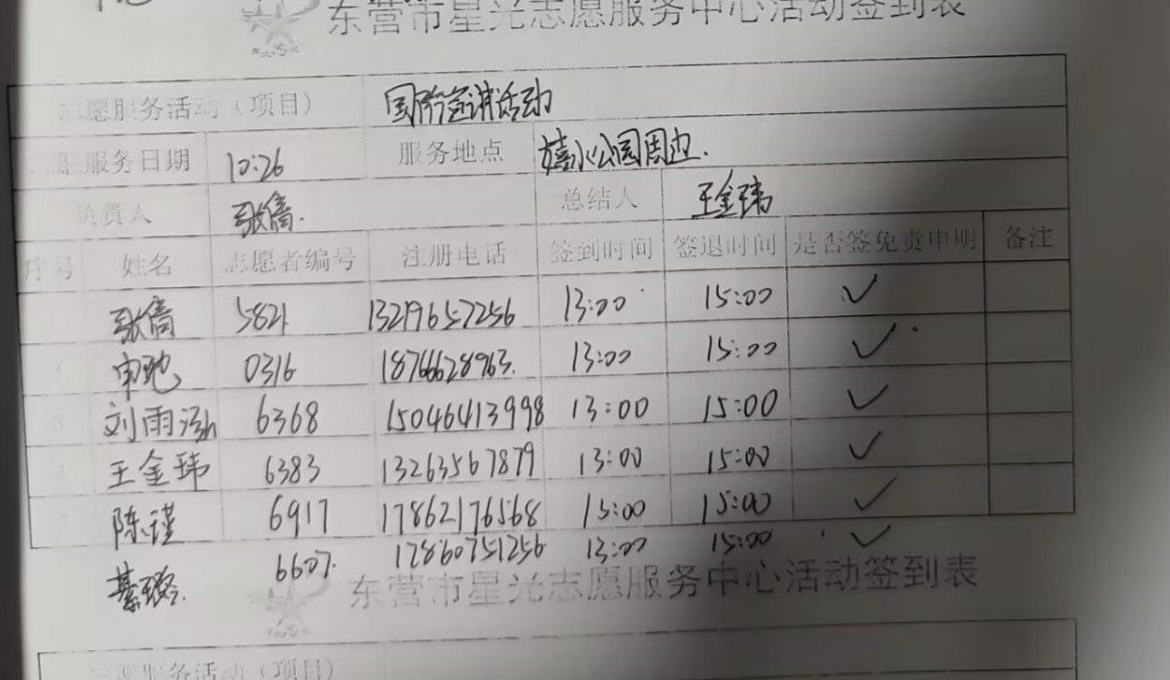 东营市星光志愿服务中心活动签到表
志愿服务活动（项目） 国防宣讲活动
志愿服务日期 10:26 服务地点 公园周边.
负责人 张倩. 总结人 王金玮
序号 姓名 志愿者编号 注册电话 签到时间 签退时间 是否签免责申明 备注
张倩 5821 13219657256 13:00 15:00 ✓
0316 18766628963. 13:00 15:00 ✓
3 刘雨 6368 15046413998 13:00 15:00 ✓
王金玮 6383 13263567879 13:00 15:00 ✓
陈谨 6917 17862176568 13:00 15:00 ✓
6607. 17860751256 13:00 15:00 ✓
东营市星光志愿服务中心活动签到表
志愿服务活动（项目）